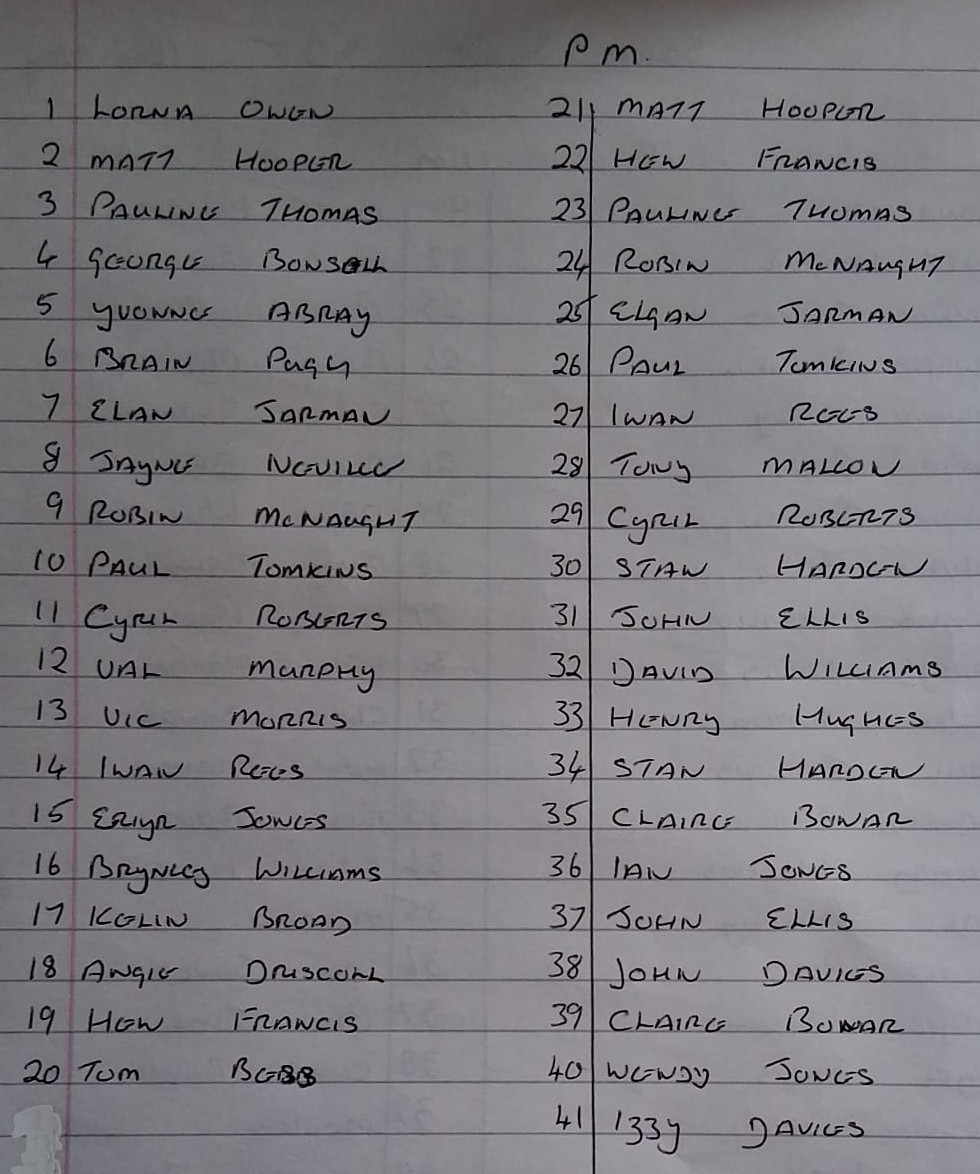 P M.
1 LORNA OWEN
2 MATT HOOPER
3 PAULINE THOMAS
4 GEORGE BONSALL
5 YVONNE ABRAY
6 BRAIN PUGH
7 ELAN JARMAN
8 JAYNE NEVILLE
9 ROBIN McNAUGHT
10 PAUL TOMKINS
11 CYRIL ROBERTS
12 VAL MURPHY
13 VIC MORRIS
14 IWAN REES
15 ERYR JONES
16 BRYNLEY WILLIAMS
17 KELIN BROAD
18 ANGIE DRISCOLL
19 HEW FRANCIS
20 TOM BEBB
21 MATT HOOPER
22 HEW FRANCIS
23 PAULINE THOMAS
24 ROBIN McNAUGHT
25 ELGAN JARMAN
26 PAUL TOMKINS
27 IWAN REES
28 TONY MALLON
29 CYRIL ROBERTS
30 STAN HARDEN
31 JOHN ELLIS
32 DAVID WILLIAMS
33 HENRY HUGHES
34 STAN HARDEN
35 CLAIRE BOWAR
36 IAN JONES
37 JOHN ELLIS
38 JOHN DAVIES
39 CLAIRE BOWAR
40 WENDY JONES
41 IZZY DAVIES